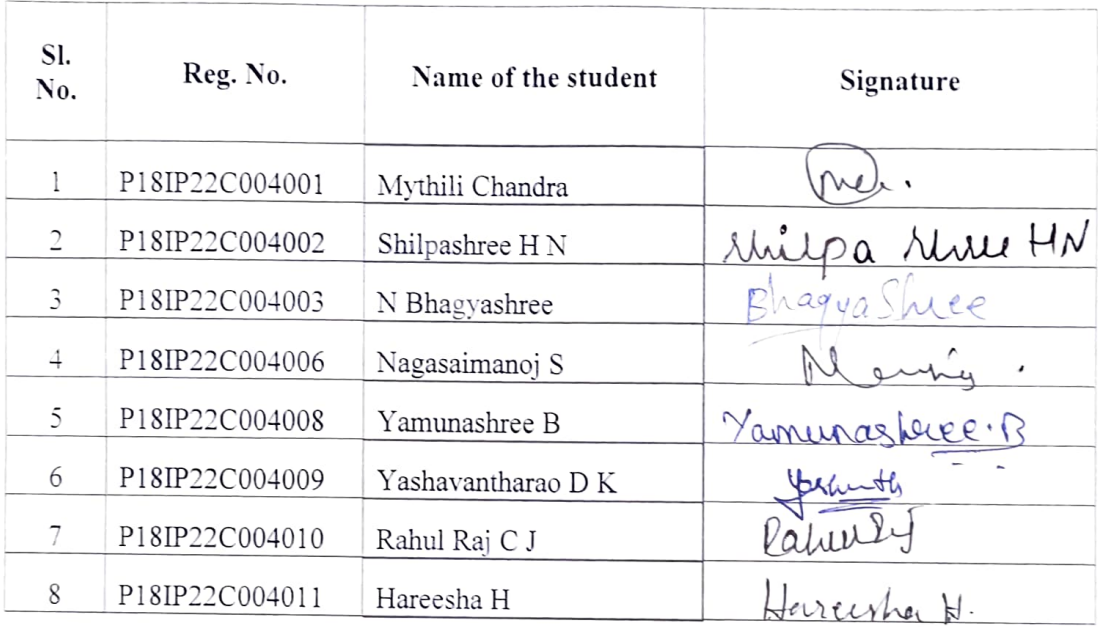 Sl. No. Reg. No. Name of the student Signature
1 P18IP22C004001 Mythili Chandra
2 P18IP22C004002 Shilpashree H N Shilpa Shree HN
3 P18IP22C004003 N Bhagyashree BhagyaShree
4 P18IP22C004006 Nagasaimanoj S
5 P18IP22C004008 Yamunashree B Yamunashree.B
6 P18IP22C004009 Yashavantharao D K
7 P18IP22C004010 Rahul Raj C J
8 P18IP22C004011 Hareesha H Hareesha H.